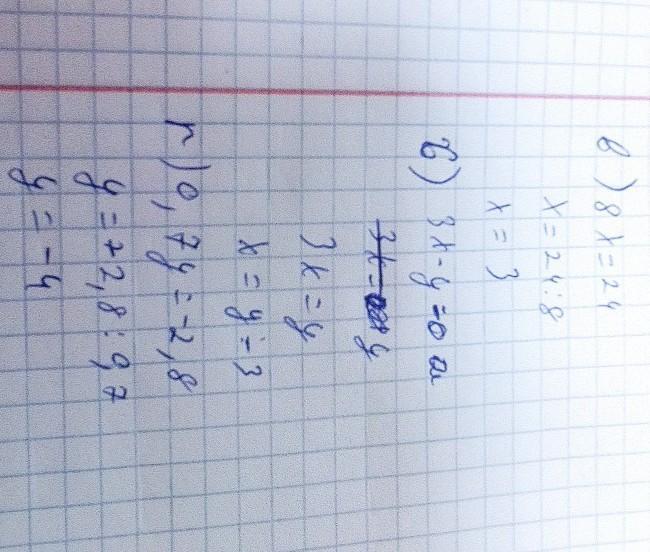 в) 8x=24
x=24:8
x=3
б) 3x-y=0 а
3x= y
3x=y
x=y÷3
г) 0,7y=-2,8
y=+2,8:0,7
y=-4